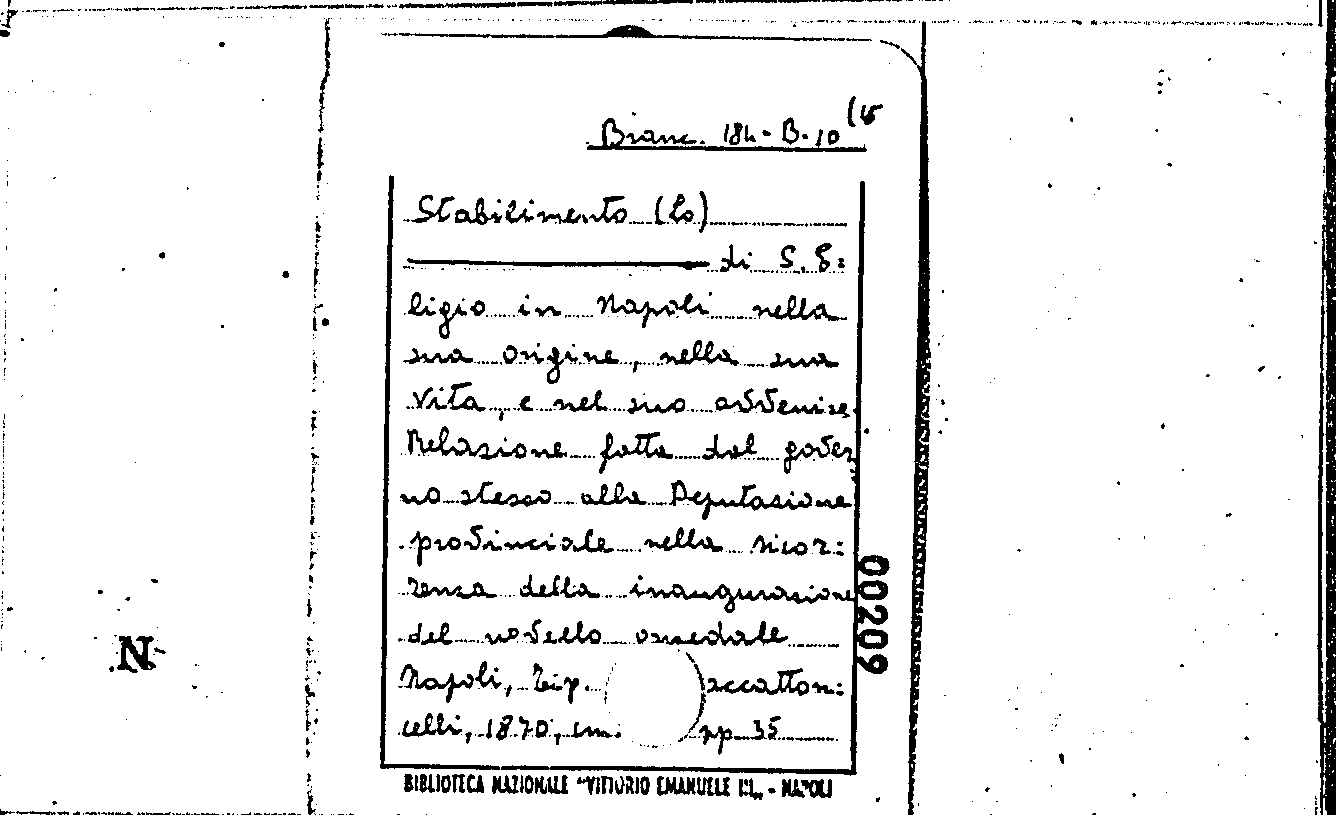 Branc. 184-B-10 (15
Stabilimento (Lo)
di S. E=
ligio in Napoli nella
sua origine, nella sua
vita, e nel suo avvenire.
Relazione fatta dal gover
no stesso alla Deputazione
provinciale nella ricor=
renza della inaugurazione
del novello ospedale
Napoli, Tip. accatton=
celli, 1870, cm. pp 35
00209
N
BIBLIOTECA NAZIONALE "VITTORIO EMANUELE III„ - NAPOLI